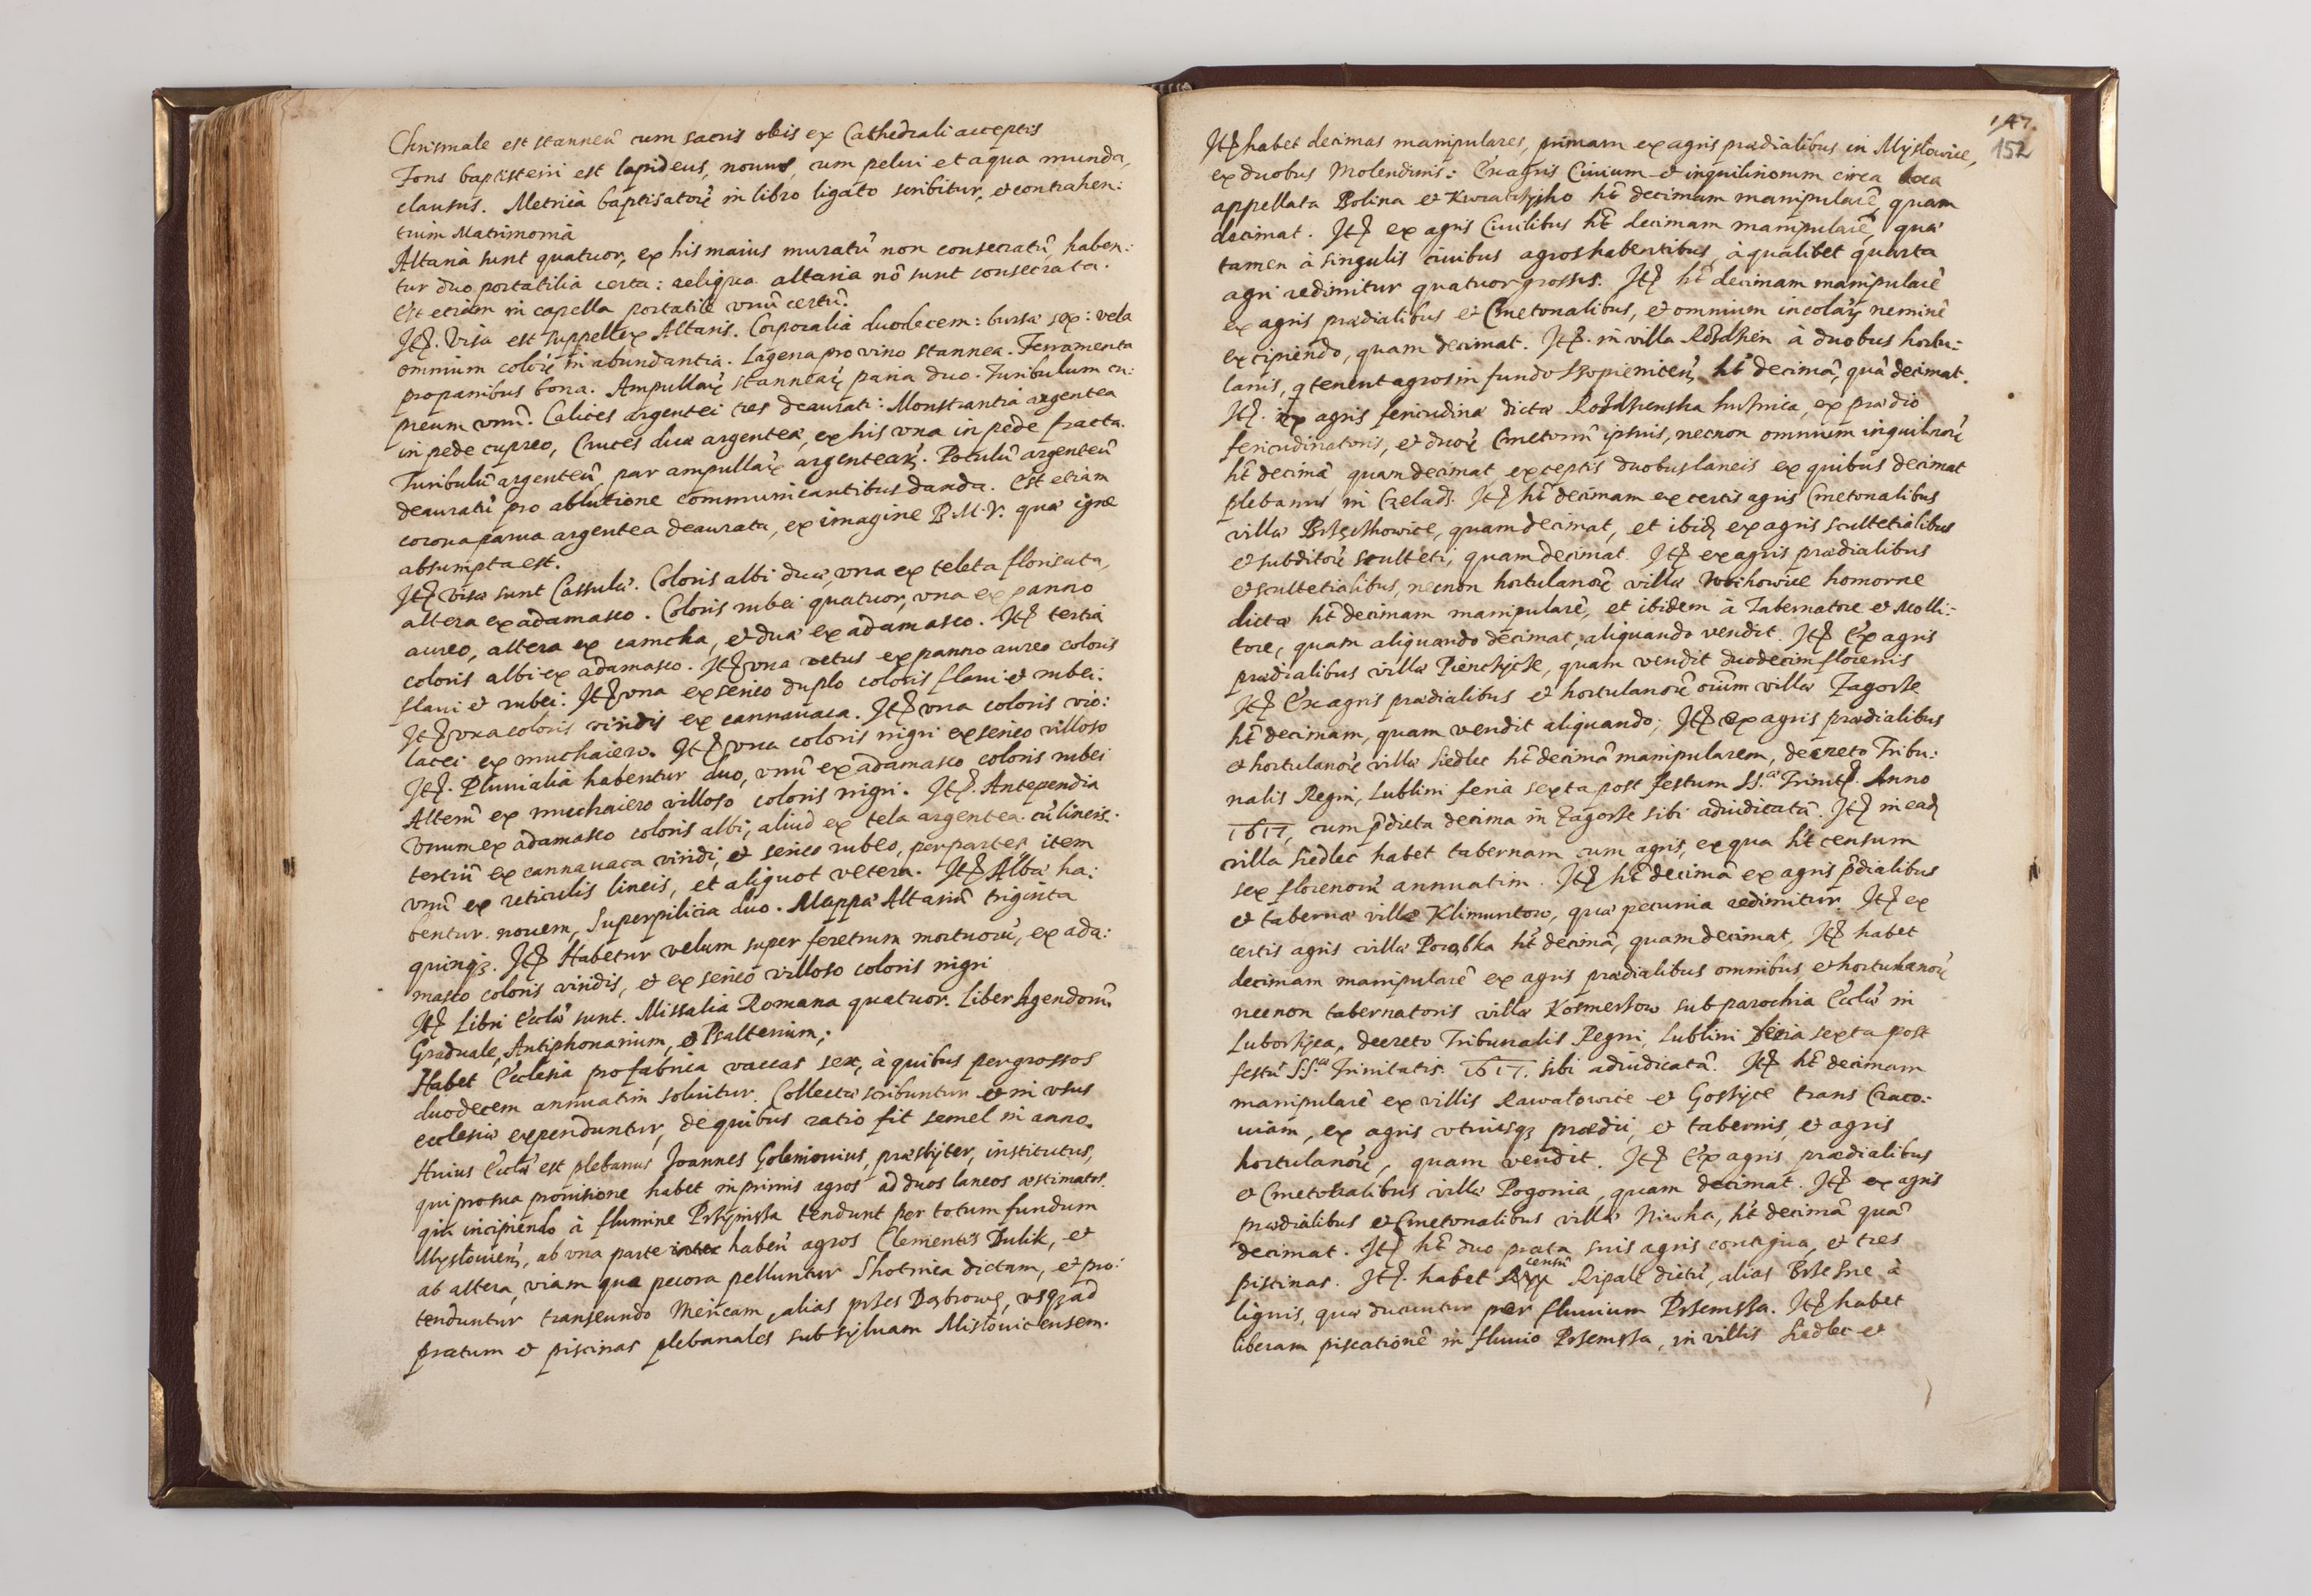 Chrismale est stanneũ cum sacris oleis ex Cathedrali acceptis
Fons baptisterii est lapideus, nouus, cum pelui et aqua munda,
clausus. Metrica baptisatorũ in libro ligato scribitur, et contrahen:
tium Matrimonia
Altaria sunt quatuor, ex his maius muratũ non consecratũ, haben:
tur duo portatilia certa: reliqua altaria nõ sunt consecrata.
Est etiam in capella portatile vnũ certũ.
Itẽ. Visa est suppellex Altaris. Corporalia duodecem: bursæ sex: vela
omnium colorũ in abundantia. Lagena pro vino stannea. Ferramenta
pro panibus bona. Ampullarũ stannearũ paria duo. Turibulum cu:
preum vnũ. Calices argentei tres deaurati: Monstrantia argentea
in pede cupreo, Cruces duæ argenteæ, ex his vna in pede fracta.
Turibulũ argenteũ, par ampullarũ argentearũ. Poculũ argenteũ
deauratũ pro ablutione communicantibus danda. Est etiam
corona parua argentea deaurata, ex imagine B.M.V. quæ igne
absumpta est.
Itẽ visæ sunt Cassulæ. Coloris albi duæ, vna ex teleta florisata,
altera ex adamasco. Coloris rubei quatuor, vna ex panno
aureo, altera ex camcha, et duæ ex adamasco. Itẽ tertia
coloris albi ex adamasco. Itẽ vna vetus ex panno aureo coloris
flaui et rubei: Itẽ vna ex serico duplo coloris flaui et rubei.
Itẽ vna coloris viridis ex cannauaca. Itẽ vna coloris vio:
lacei ex muchaiero. Itẽ vna coloris nigri ex serico villoso
Itẽ. Pluuialia habentur duo, vnũ ex adamasco coloris rubei
Alterũ ex muchaiero villoso coloris nigri. Itẽ. Antependia
Vnum ex adamasco coloris albi, aliud ex tela argentea cũ lineis.
tertiũ ex cannauaca viridi, et serico rubeo, per partes, item
vnũ ex reticulis lineis, et aliquot vetera. Itẽ Albæ ha:
bentur nouem, Superpilicia duo. Mappæ Altariũ triginta
quinq3. Itẽ Habetur velum super feretrum mortuorũ, ex ada:
masco coloris viridis, et ex serico villoso coloris nigri
Itẽ Libri Eccl'æ sunt. Missalia Romana quatuor. Liber Agendorũ
Graduale, Antiphonarium, et Psalterium;
Habet Ecclesia pro fabrica vaccas sex, à quibus per grossos
duodecem annuatim soluitur. Collectæ scribuntur et in vsus
ecclesiæ expenduntur, de quibus ratio fit semel in anno.
Huius Eccl'æ est plebanus Joannes Goleniouius, præsbyter, institutus,
qui pro sua prouisione habet inprimis agros ad duos laneos æstimatos.
qui incipiendo à flumine Przymsza tendunt per totum fundum
Mysłouien̄, ab vna parte haben̄ agros Clementis Dulik, et
ab altera, viam qua pecora pelluntur Skotnica dictam, et pro:
tenduntur transeundo Mericam, alias przes Dąbrowę, vsq3 ad
pratum et piscinas plebanales sub syluam Misłouicensem.
147.
152
Itẽ habet decimas manipulares, primam ex agris prædialibus in Mysłowice,
ex duobus Molendinis: Ex agris Ciuium et inquilinorum circa loca
appellata Bolina et ht̃ decimam manipularẽ, quam
decimat. Itẽ ex agris Ciuilibus ht̃ decimam manipularẽ, quæ
tamen à singulis ciuibus agros habentibus, à qualibet quarta
agri redimitur quatuor grossis. Itẽ ht̃ decimam manipularẽ
ex agris prædialibus et Cmetonalibus, et omnium incolarũ neminẽ
excipiendo, quam decimat. Itẽ. in villa Rozdzen à duobus hortu:
lanis, q tenent agros in fundo Ssopienicen̄, ht̃ decimã, quã decimat.
Itẽ. ex agris fericudinæ dictæ Rozdzienska huthnica, ex prædio
fericudinatoris, et duorũ Cmetonũ ipsius, necnon omnium inquilinorũ
ht̃ decimã quam decimat, exceptis duobus laneis ex quibus decimat
plebanus in Czeladz. Itẽ ht̃ decimam ex certis agris Cmetonalibus
villæ Brzęczkowice, quam decimat, et ibid̃ ex agris scultetialibus
et subditorũ sculteti, quam decimat. Itẽ ex agris prædialibus
et scultetialibus, necnon hortulanorũ villæ homorne
dictæ ht̃ decimam manipularẽ, et ibidem à Tabernatore et Molli:
tore, quam aliquando decimat, aliquando vendit. Itẽ Ex agris
prædialibus villæ quam vendit duodecim florenis
Itẽ Ex agris prædialibus et hortulanorũ oĩum villæ Zagorze
ht̃ decimam, quam vendit aliquando; Itẽ ex agris prædialibus
et hortulanorũ villæ Siedlec ht̃ decimã manipularem, decreto Tribu:
nalis Regni, Lublini feria sexta post festum SS.æ Trinitẽ. Anno
1617, cum p̃dicta decima in Zagorze sibi adiudicatã. Itẽ in ead̃
villa Siedlec habet tabernam cum agris, ex qua ht̃ censum
sex florenorũ annuatim. Itẽ ht̃ decimã ex agris p̃dialibus
et tabernæ villæ Klimuntow, quæ pecunia redimitur. Itẽ ex
certis agris villæ Porąbka ht̃ decimã, quam decimat, Itẽ habet
decimam manipularẽ ex agris prædialibus omnibus, et hortulanorũ
necnon tabernatoris villæ Kosmerzow sub parochia Eccl'æ in
Luborzyca, decreto Tribunalis Regni, Lublini feria sexta post
festũ SS.æ Trinitatis. 1617. sibi adiudicatã. Itẽ ht̃ decimam
manipularẽ ex villis Rawałowice et Gossyce trans Craco:
uiam, ex agris vtriusq3 prædii, et tabernis, et agris
hortulanorũ, quam vendit. Itẽ Ex agris prædialibus
et Cmetonalibus villæ Pogonia, quam decimat. Itẽ ex agris
prædialibus et Cmetonalibus villæ Niwka, ht̃ decimã quã
decimat. Itẽ ht̃ duo prata suis agris contigua, et tres
piscinas. Itẽ. habet censũ Ripale dictũ, alias Brzezne à
lignis, quæ ducuntur per fluuium Przemsza. Itẽ habet
liberam piscationẽ in fluuio Przemsza, in villis Siedlec et